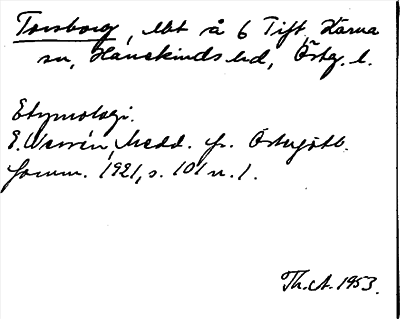 Torsborg, lbt å 6 Tift, Harva
sn, Hanekinds hd, Östg. l.
Etymologi.
E. Wessén, Medd. fr. Östergötl.
fornm. 1921, s. 101 n. 1.
Th. A. 1953.